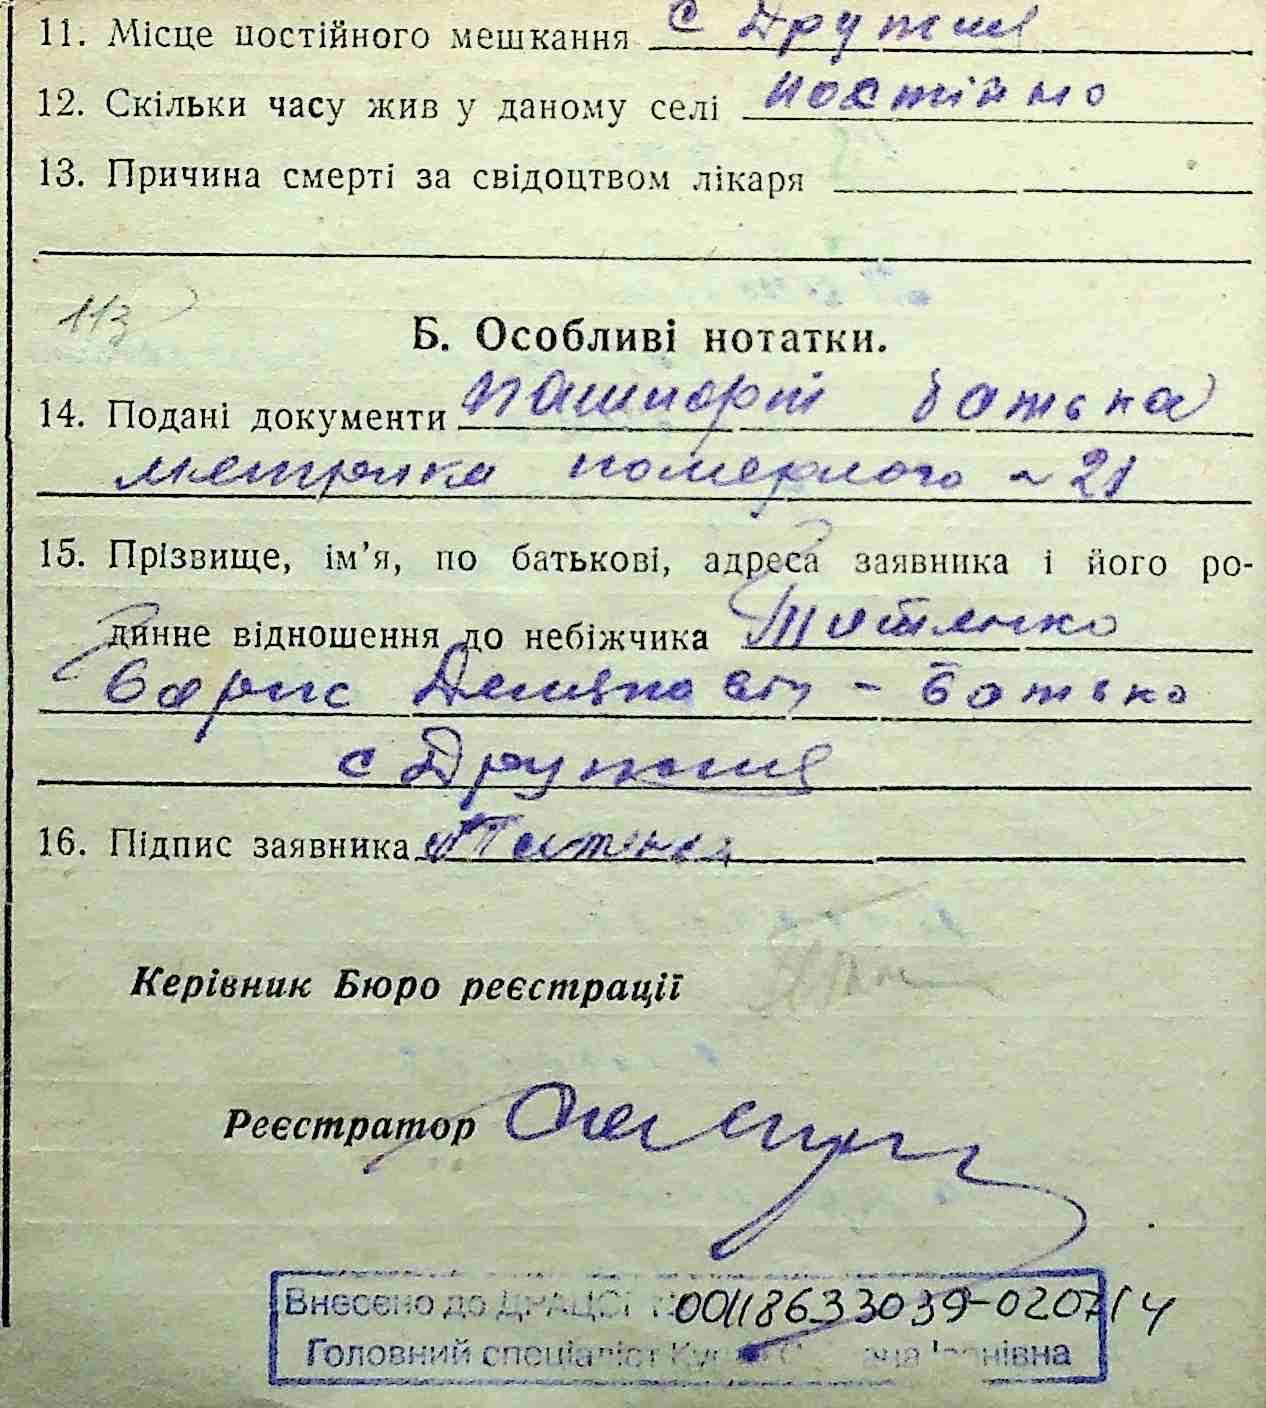 11. Місце постійного мешкання с Дружня
12. Скільки часу жив у даному селі постійно
13. Причина смерті за свідоцтвом лікаря
113
Б. Особливі нотатки.
14. Подані документи пашпорт батька
метрика померлого 21
15. Прізвище, ім’я, по батькові, адреса заявника і його ро-
динне відношення до небіжчика Титенко
Борис Демьнович - батько
с Дружня
16. Підпис заявника
Керівник Бюро реєстрації
Реєстратор
Внесено до ДРАЦСГ 00118633039-0207/4
Головний спеціаліст